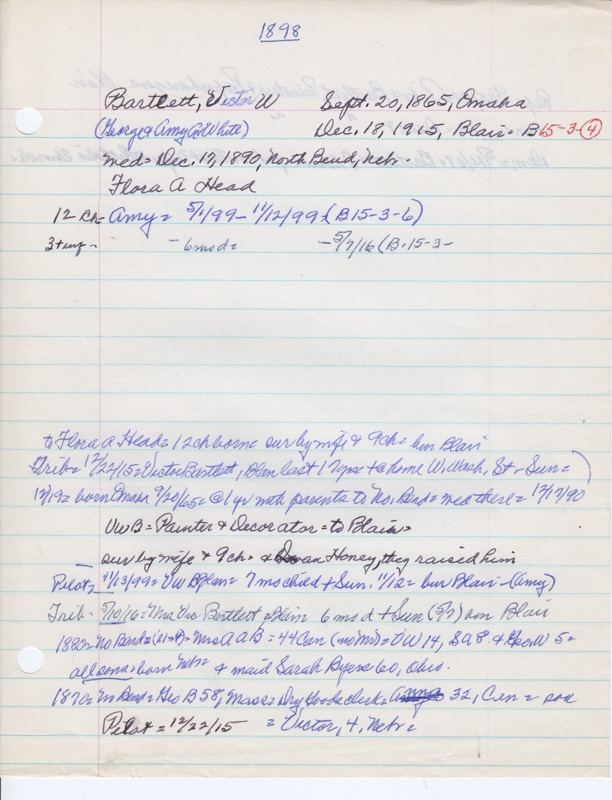 1898
Bartlett, Victor W Sept. 20, 1865, Omaha
(George & Amy A White) Dec. 18, 1915, Blair = B15-3-(4)
med = Dec. 17, 1890, North Bend, Nebr.
Flora A Head
12 ch = Amy = 5/1/99 - 11/12/99 (B15-3-6)
3+inf - - 6 mo d = - 5/7/16 (B-15-3-
to Flora A Head = 12 ch born = sur by wife & 9 ch = bur Blair
Trib = 12/22/15 = Victor Bartlett, Blair last 17 yrs + @ home W. Wash, St - Sun =
12/19 = born Omaha 9/20/65 = @ 1 yr with parents to No. Bend = med there = 12/17/90
VWB = Painter & Decorator = to Blair =
sur by wife & 9 ch = & Honey, they raised him
Pilot = 11/13/99 = VWB Blair = 7 mo child + Sun. 11/12 = bur Blair - (Amy)
Trib - 5/10/16 = Mrs Vic Bartlett Blair 6 mo d + Sun (5/7) bur Blair
1880 = No Bend = = Mrs A A B = 44 Can = VW 14, S A 8 & Geo W 5 =
all sons = born Nebr = & maid Sarah Byers 60, Ohio.
1870 = No Bend = Geo B 58, Mass = Dry Goods clerk = 32, Can =
Pilot = 12/22/15 = Victor, 4, Nebr =